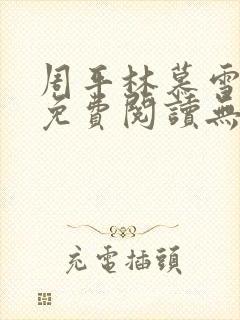 周平林慕雪
免費閱讀無
充電插頭